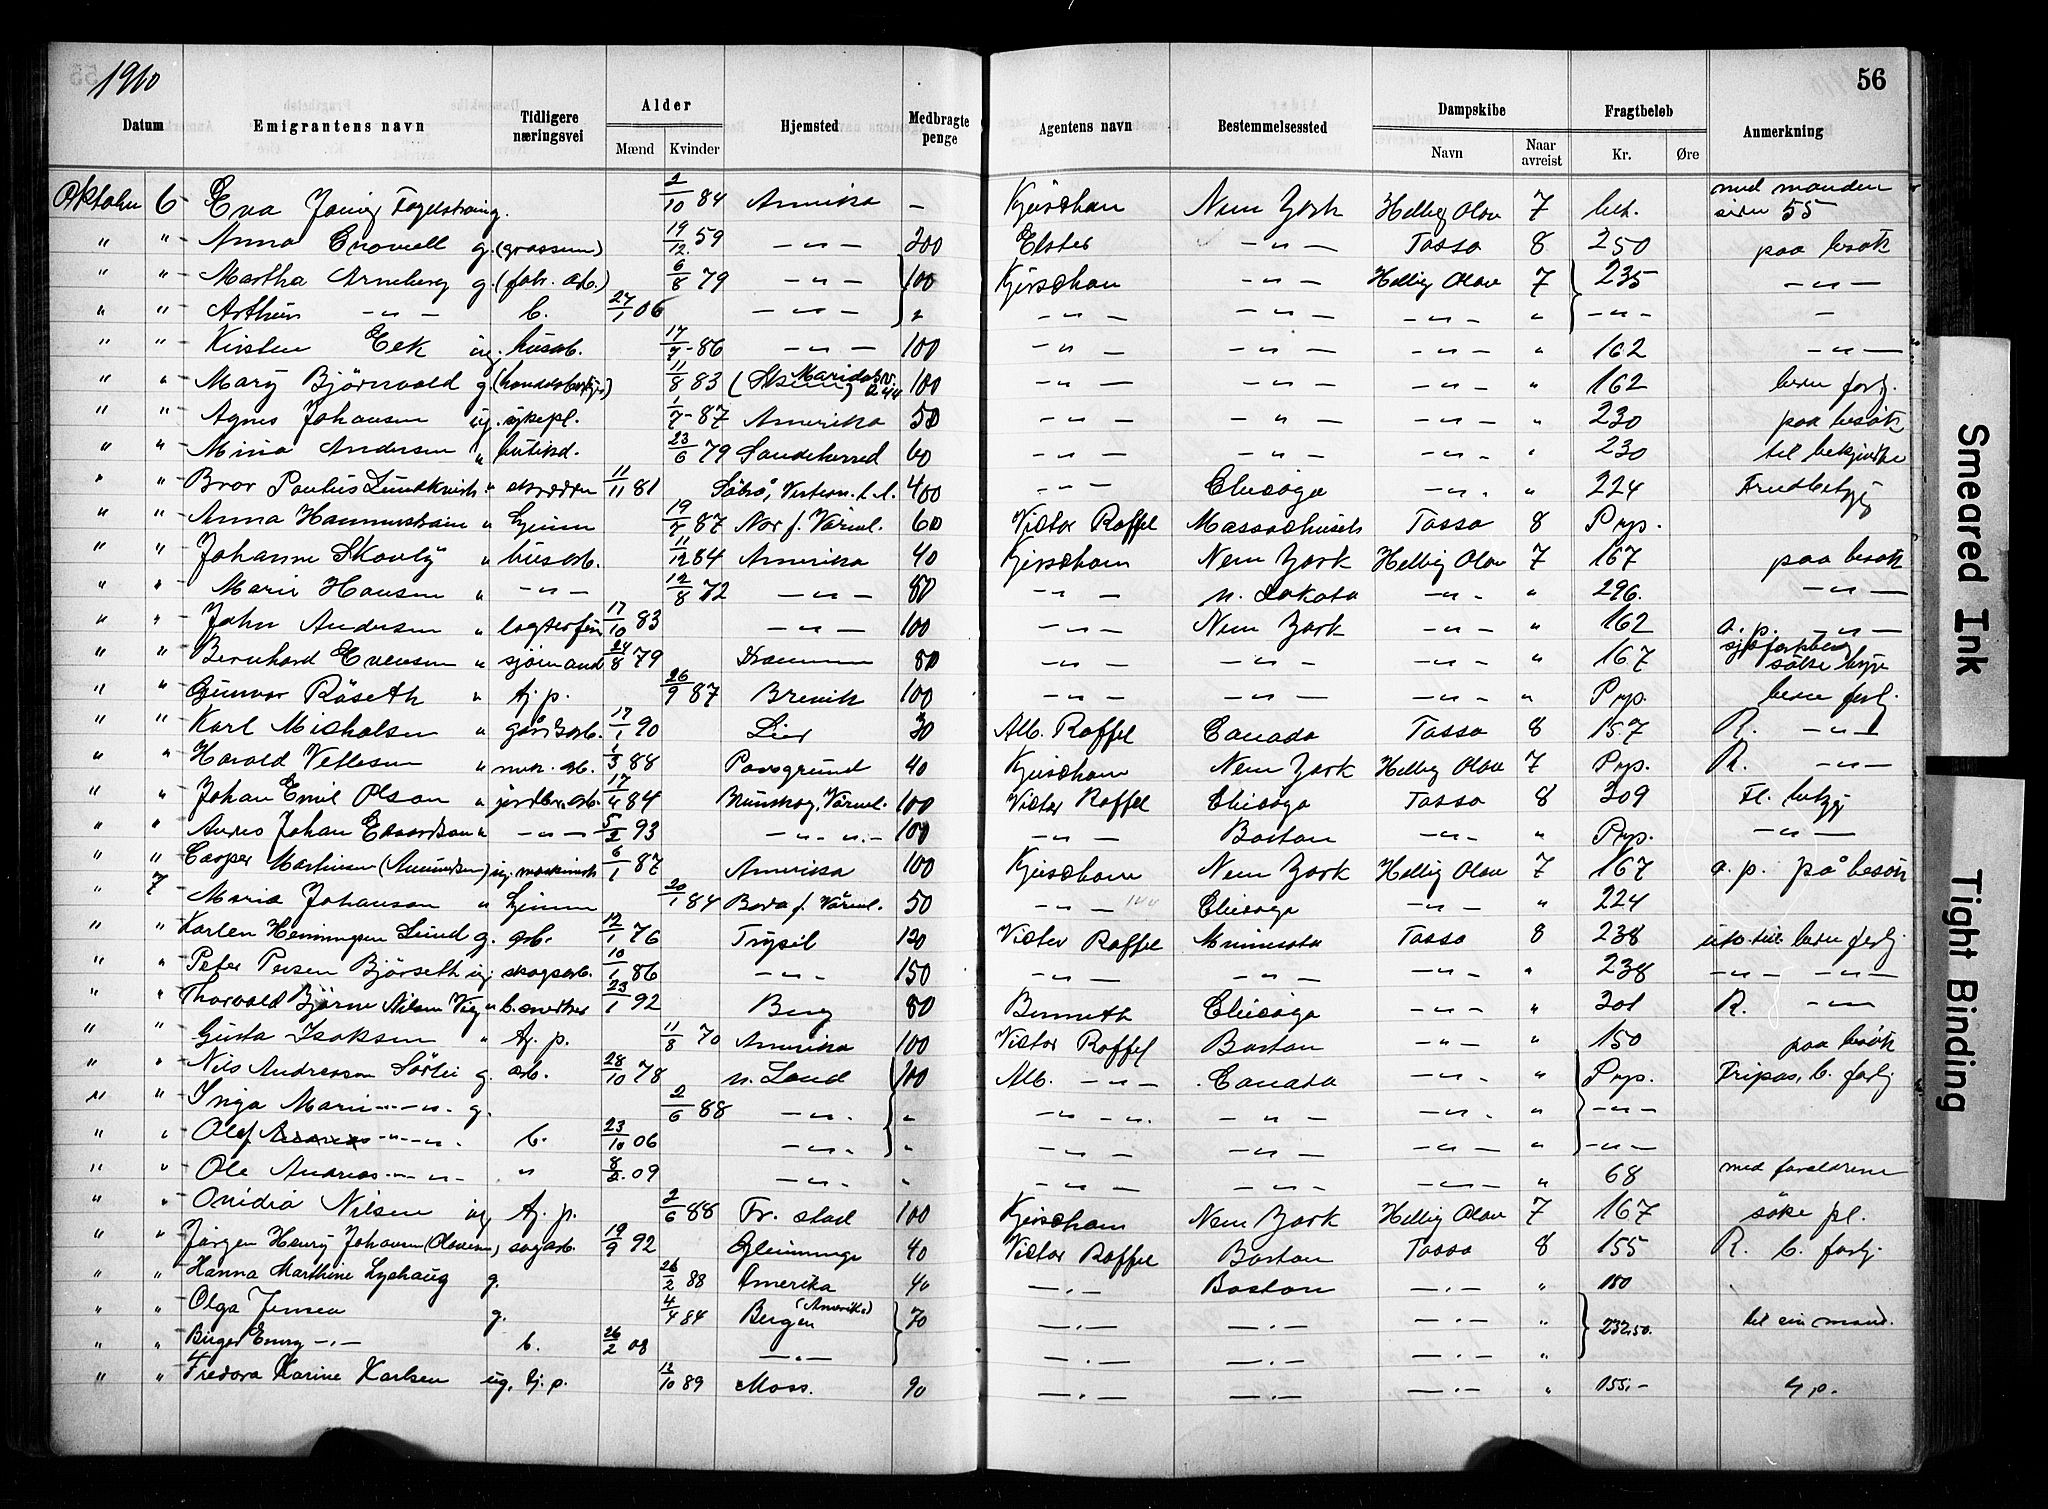 1910
56
Datum Emigrantens navn Tidligere næringsvei Alder Mænd Kvinder Hjemsted Medbragte penge Agentens navn Bestemmelsessted Dampskibe Navn Naar avreist Fragtbeløb Kr. Øre Anmerkning
6 Eva 2/10 84 Amerika — New York Hellig Olav 7 med manden siden 55
" " Anna g. 19/12 59 — " — 200 Elster — " — Tasso 8 250 paa besøk
" " Martha Arneberg g. (fabr. arb.) 6/8 79 — " — 100 — " — Hellig Olav 7 235 — " —
" " Arthur — " — b. 27/1 06 — " — " — " — — " — — " — " — " — —
" " Kirsten Eek ug. husarb. 17/7 86 — " — 100 — " — — " — — " — " 162 — " —
" " Mary Bjørnvold g. 11/8 83 Maridalsv. 244 100 — " — — " — — " — " 162
" " Agnes Johansen ug. sykepl. 1/7 87 Amerika 50 — " — — " — — " — " 230 paa besøk
" " Mina Andersen " butikd. 23/6 79 Sandeherred 60 — " — — " — — " — " 230 til bekjendte
" " Bror Paulus Lundkvist " skrædder 11/11 81 400 — " — Chicago — " — " 224
" " Anna " tjener 19/7 87 Nor f. Värml. 60 Victor Roffel Massachusets Tasso 8 Prp.
" " Johanne Skovly " husarb. 11/12 84 Amerika 40 New York Hellig Olav 7 167 paa besøk
" " Marie Hansen " — " — 12/8 72 — " — 80 — " — N. Dakota — " — " 296. — " —
" " John Andersen " 17/10 83 — " — 100 — " — New York — " — " 162 a. p. — " —
" " Bernhard Evensen " sjømand 24/8 79 Drammen 80 — " — — " — — " — " 167 søke hyre
" " Gunvor Röseth " tj. p. 26/9 87 Brevik 100 — " — — " — — " — " Prp. bedre fortj.
" " Karl Michalsen " gårdsarb. 17/1 90 Lier 30 Alb. Roffel Canada Tasso 8 157 R. — " —
" " Harald Vetlesen " mek. arb. 1/3 88 Porsgrund 40 New York Hellig Olav 7 Prp. R. — " —
" " Johan Emil Olson " jordbr. arb. 17/4 84 Brunskog, Värml. 100 Victor Roffel Chicago Tasso 8 309
" " Johan Edvardson " — " — 5/2 93 — " — " — 100 — " — Boston — " — " Prp. — " —
" " Casper Martinsen (Amundsen) ug. maskinist 6/1 87 Amerika 100 New York Hellig Olav 7 167 a. p. på besøk
" 7 Maria Johanson " tjener 20/1 84 Värml. 50 — " — 144 Chicago — " — " 224
" " Karlen Henningsen Lund g. arb. 12/1 76 Trysil 120 Victor Roffel Minnesota Tasso 8 238 bedre fortj.
" " Peter Persen Björseth ug. skogsarb. 10/1 86 — " — 150 — " — — " — — " — " 238 — " — — " —
" " Thorvald Bjarne Nilsen Vig " b. snedker 23/1 92 Berg 80 Bennett Chicago — " — " 201 R. — " —
" " Gusta Isaksen " tj. p. 11/8 70 Amerika 100 Victor Roffel Boston — " — " 150 paa besøk
" " Nils Andreassen g. arb. 28/10 78 N. Land 100 Alb. — " — Canada — " — " Prp. Fripas, b. fortj
" " Inga Marie — " — g. 2/6 88 — " — " — " — — " — — " — " — " —
" " Olaf — " — b. 23/10 06 — " — " — " — — " — — " — " — " —
" " Ole Andreas — " — " 8/2 09 — " — " — " — — " — — " — " 68 med forældrene
" " Ovidia Nilsen ug. tj. p. 2/6 88 Fr. stad 100 New York Hellig Olav 7 167 søke pl.
" " Jørgen Henry Johansen (Olausen) sagarb. 19/9 92 Glemminge 40 Victor Roffel Boston Tasso 8 155 R. b. fortj.
" " Hanna Marthine Lyshaug g. 26/2 88 Amerika 40 — " — Boston — " — " 150
" " Olga Jensen g. 4/4 84 Bergen (Amerika) 70 — " — — " — — " — " 232.50. til sin mand.
" " Birger — " — b. 26/2 08 — " — — " — — " — — " — "
" " Fredora Karine Karlsen ug. tj. p. 12/10 89 Moss. 90 — " — — " — — " — " 155.—
Smeared Ink
Tight Binding